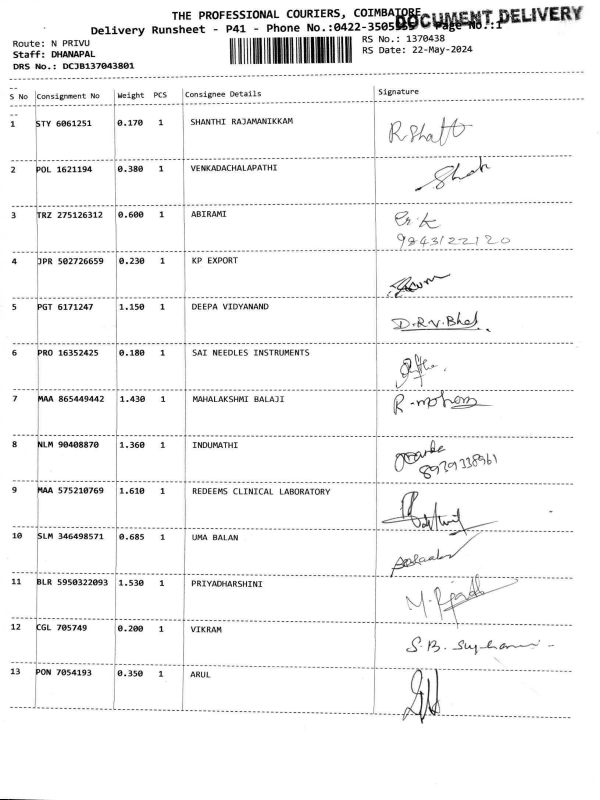 THE PROFESSIONAL COURIERS, COIMBATORE
DOCUMENT DELIVERY
Delivery Runsheet - P41 - Phone No.:0422-3505 Page No.:1
Route: N PRIVU
RS No.: 1370438
Staff: DHANAPAL
RS Date: 22-May-2024
DRS No.: DCJB137043801
S No Consignment No Weight PCS Consignee Details Signature
1 STY 6061251 0.170 1 SHANTHI RAJAMANIKKAM
2 POL 1621194 0.380 1 VENKADACHALAPATHI
3 TRZ 275126312 0.600 1 ABIRAMI
9843122120
4 JPR 502726659 0.230 1 KP EXPORT
5 PGT 6171247 1.150 1 DEEPA VIDYANAND
6 PRO 16352425 0.180 1 SAI NEEDLES INSTRUMENTS
7 MAA 865449442 1.430 1 MAHALAKSHMI BALAJI
8 NLM 90408870 1.360 1 INDUMATHI
8939338961
9 MAA 575210769 1.610 1 REDEEMS CLINICAL LABORATORY
10 SLM 346498571 0.685 1 UMA BALAN
11 BLR 5950322093 1.530 1 PRIYADHARSHINI
12 CGL 705749 0.200 1 VIKRAM
13 PON 7054193 0.350 1 ARUL